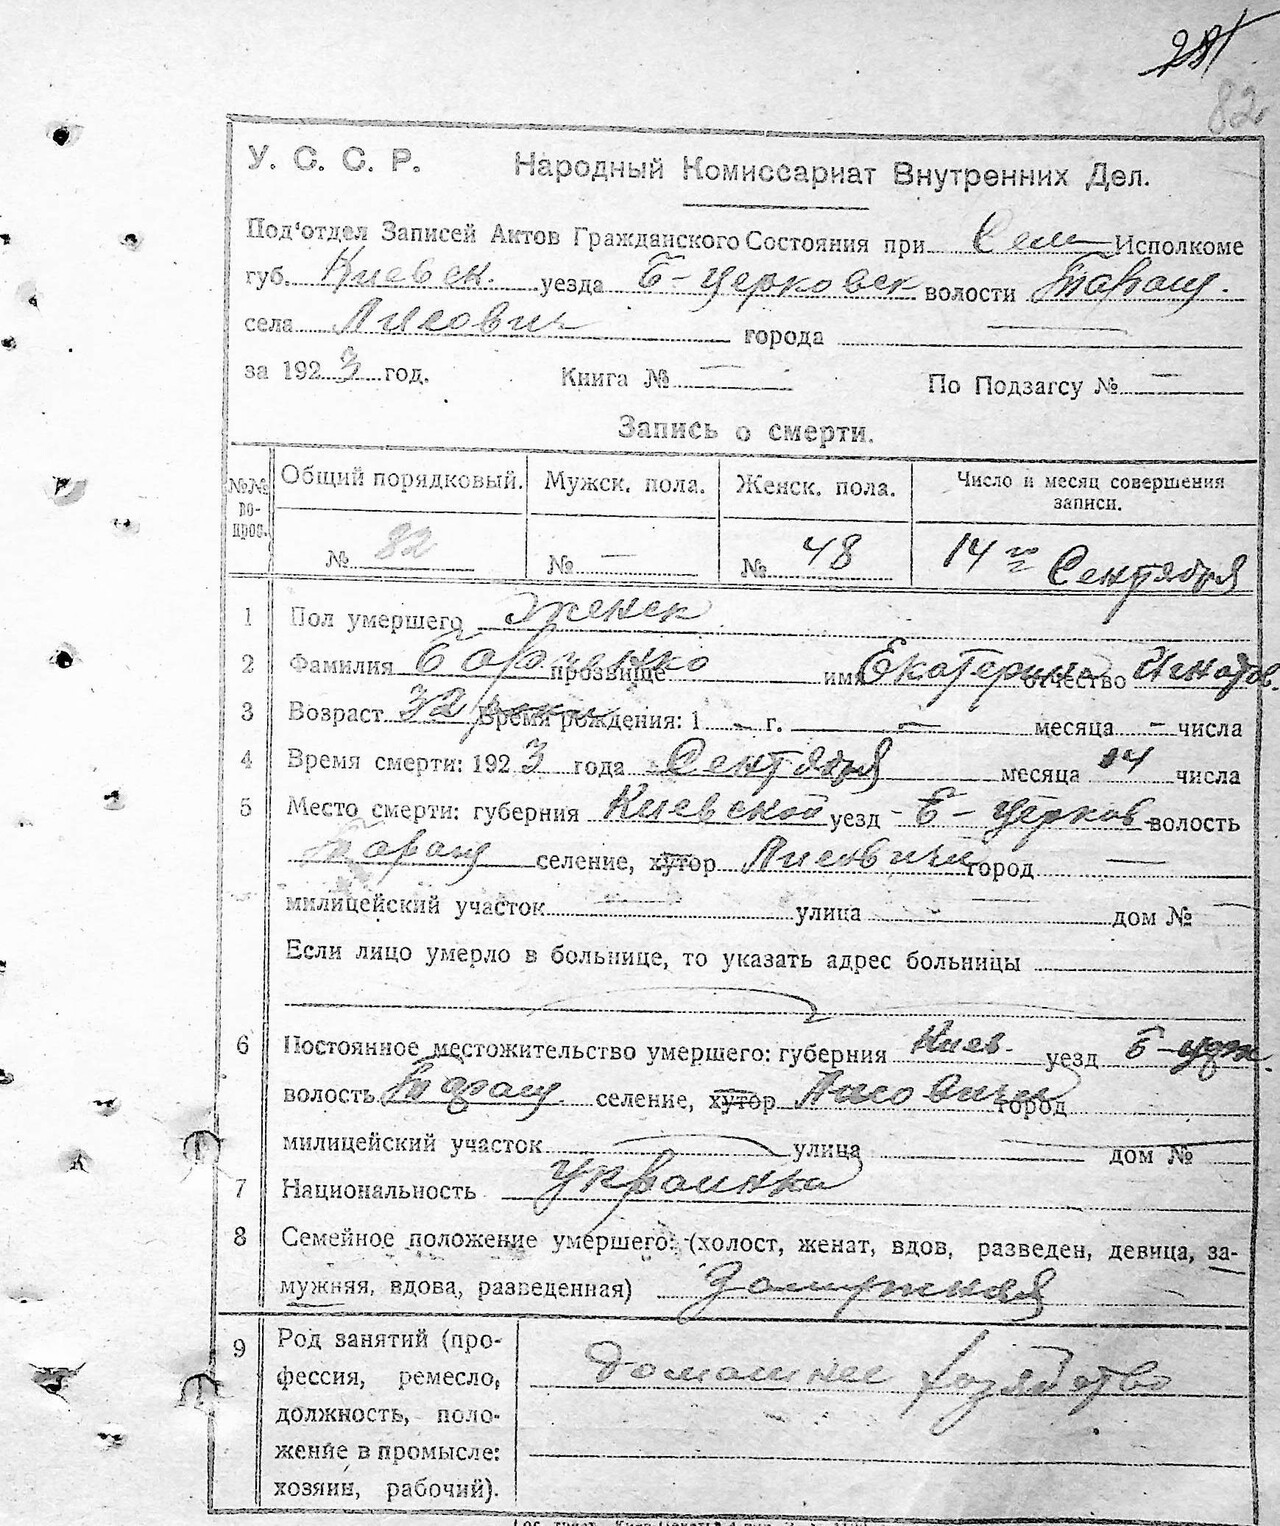 82
У. С. С. Р. Народный Комиссариат Внутренних Дел.
Под'отдел Записей Актов Гражданского Состояния при Сель Исполкоме
губ. Киевск. уезда Б-Церковск волости Таращ.
села Лисович города —
за 1923 год. Книга № — По Подзагсу № —
Запись о смерти.
№№ вопрос. Общий порядковый. Мужск. пола. Женск. пола. Число и месяц совершения записи.
№ 82 № — № 48 14го Сентября
1 Пол умершего женск
2 Фамилия прозвище имя Екатерина отчество Игнатов.
3 Возраст 32 Время рождения: 1 — г. — месяца — числа
4 Время смерти: 1923 года Сентября месяца 14 числа
5 Место смерти: губерния Киевской уезд Б-Церков волость
Таращ селение, хутор Лисовичи город —
милицейский участок — улица — дом № —
Если лицо умерло в больнице, то указать адрес больницы
6 Постоянное местожительство умершего: губерния Киев. уезд Б-Церк.
волость Таращ селение, хутор Лисовичи город
милицейский участок — улица — дом №
7 Национальность украинка
8 Семейное положение умершего: (холост, женат, вдов, разведен, девица, за-
мужняя, вдова, разведенная) замужная
9 Род занятий (про-
фессия, ремесло, домашнее хозяйство
должность, поло-
жение в промысле:
хозяин, рабочий).